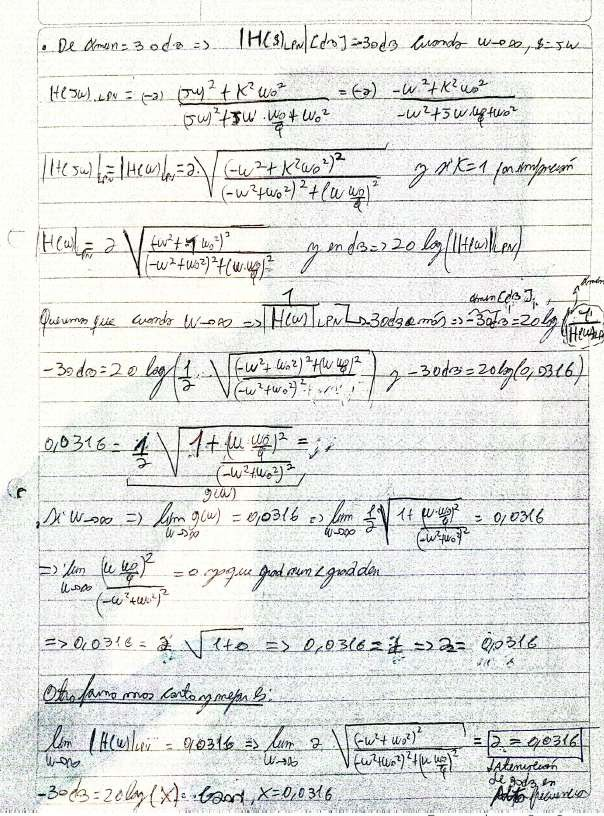 . De αmin = 30dB => |H(s)|LPN|[dB] = -30dB cuando w→∞, s=jw
H(jw)LPN = (-a) (jw)² + K²w0² / (jw)² + jw · w0/q + w0² = (-a) -w² + K²w0² / -w² + jw w0/q + w0²
|H(jw)|LPN = |H(w)|LPN = a √ (-w² + K²w0²)² / (-w² + w0²)² + (w w0/q)² y si K=1
|H(w)|LPN = a √ (-w² + 1 w0²)² / (-w² + w0²)² + (w · w0/q)² y en dB => 20 log(|H(w)|LPN)
Queremos que cuando w→∞ => 1 / |H(w)|LPN → -30dB o más => αmin[dB] -30dB = 20 log( 1 / |H(w)|LPN )
-30dB = 20 log( 1/2 · √ (-w² + w0²)² + (w w0/q)² / (-w² + w0²)² ) y -30dB = 20 log(0,0316)
0,0316 = 1/2 √ 1 + (w · w0/q)² / (-w² + w0²)² =
g(w)
Si w→∞ => lim w→∞ g(w) = 0,0316 => lim w→∞ 1/2 √ 1 + (w · w0/q)² / (-w² + w0²)² = 0,0316
=> lim w→∞ (w w0/q)² / (-w² + w0²)² = 0 ya que grad num < grad den
=> 0,0316 = √ 1+0 => 0,0316 = => a = 0,0316
Otra forma mas corta y mejor es:
lim w→∞ |H(w)|LPN = 0,0316 => lim w→∞ a √ (-w² + w0²)² / (-w² + w0²)² + (w w0/q)² = a = 0,0316
-30dB = 20 log(X) = X = 0,0316
Atenuación
de 30dB en
Altas frecuencias